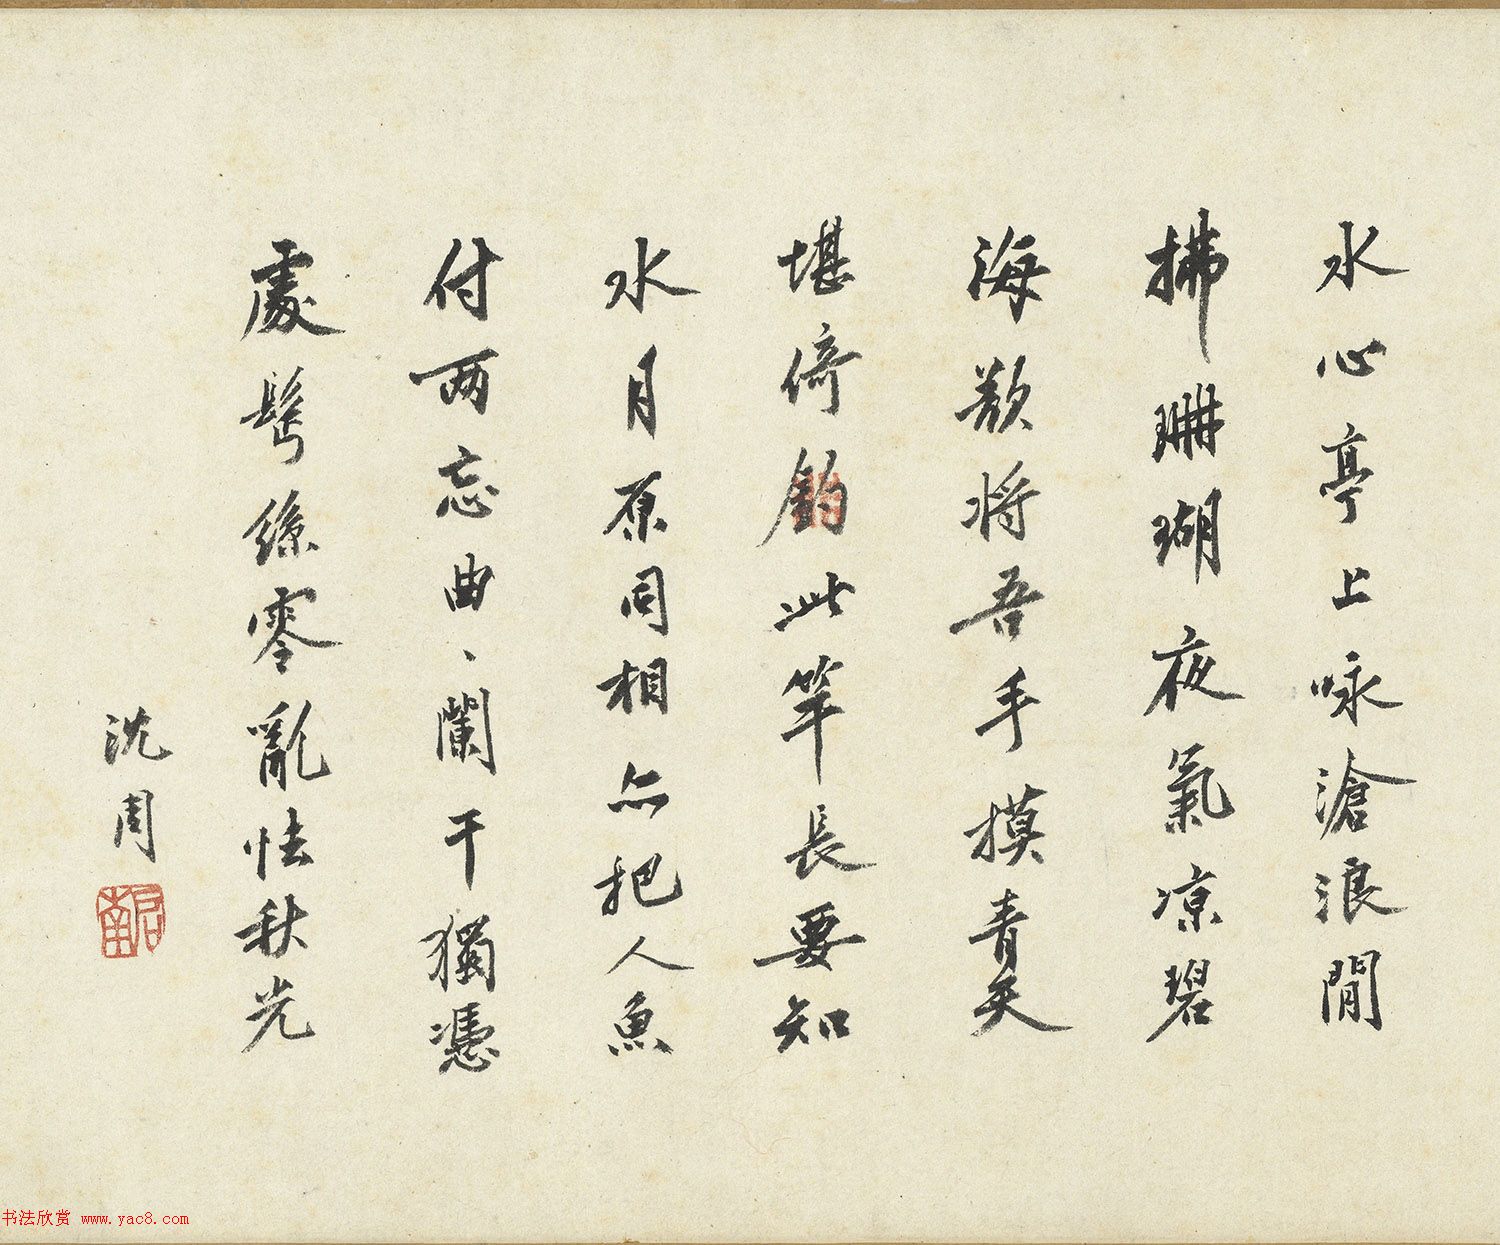 水心亭上咏滄浪閒
拂珊瑚夜氣凉碧
海欲將吾手摸青天
堪倚釣此竿長要知
水月原同相亦把人魚
付兩忘曲、闌干獨憑
處鬂絲零亂怯秋光
沈周
啟南
书法欣赏 www.yac8.com